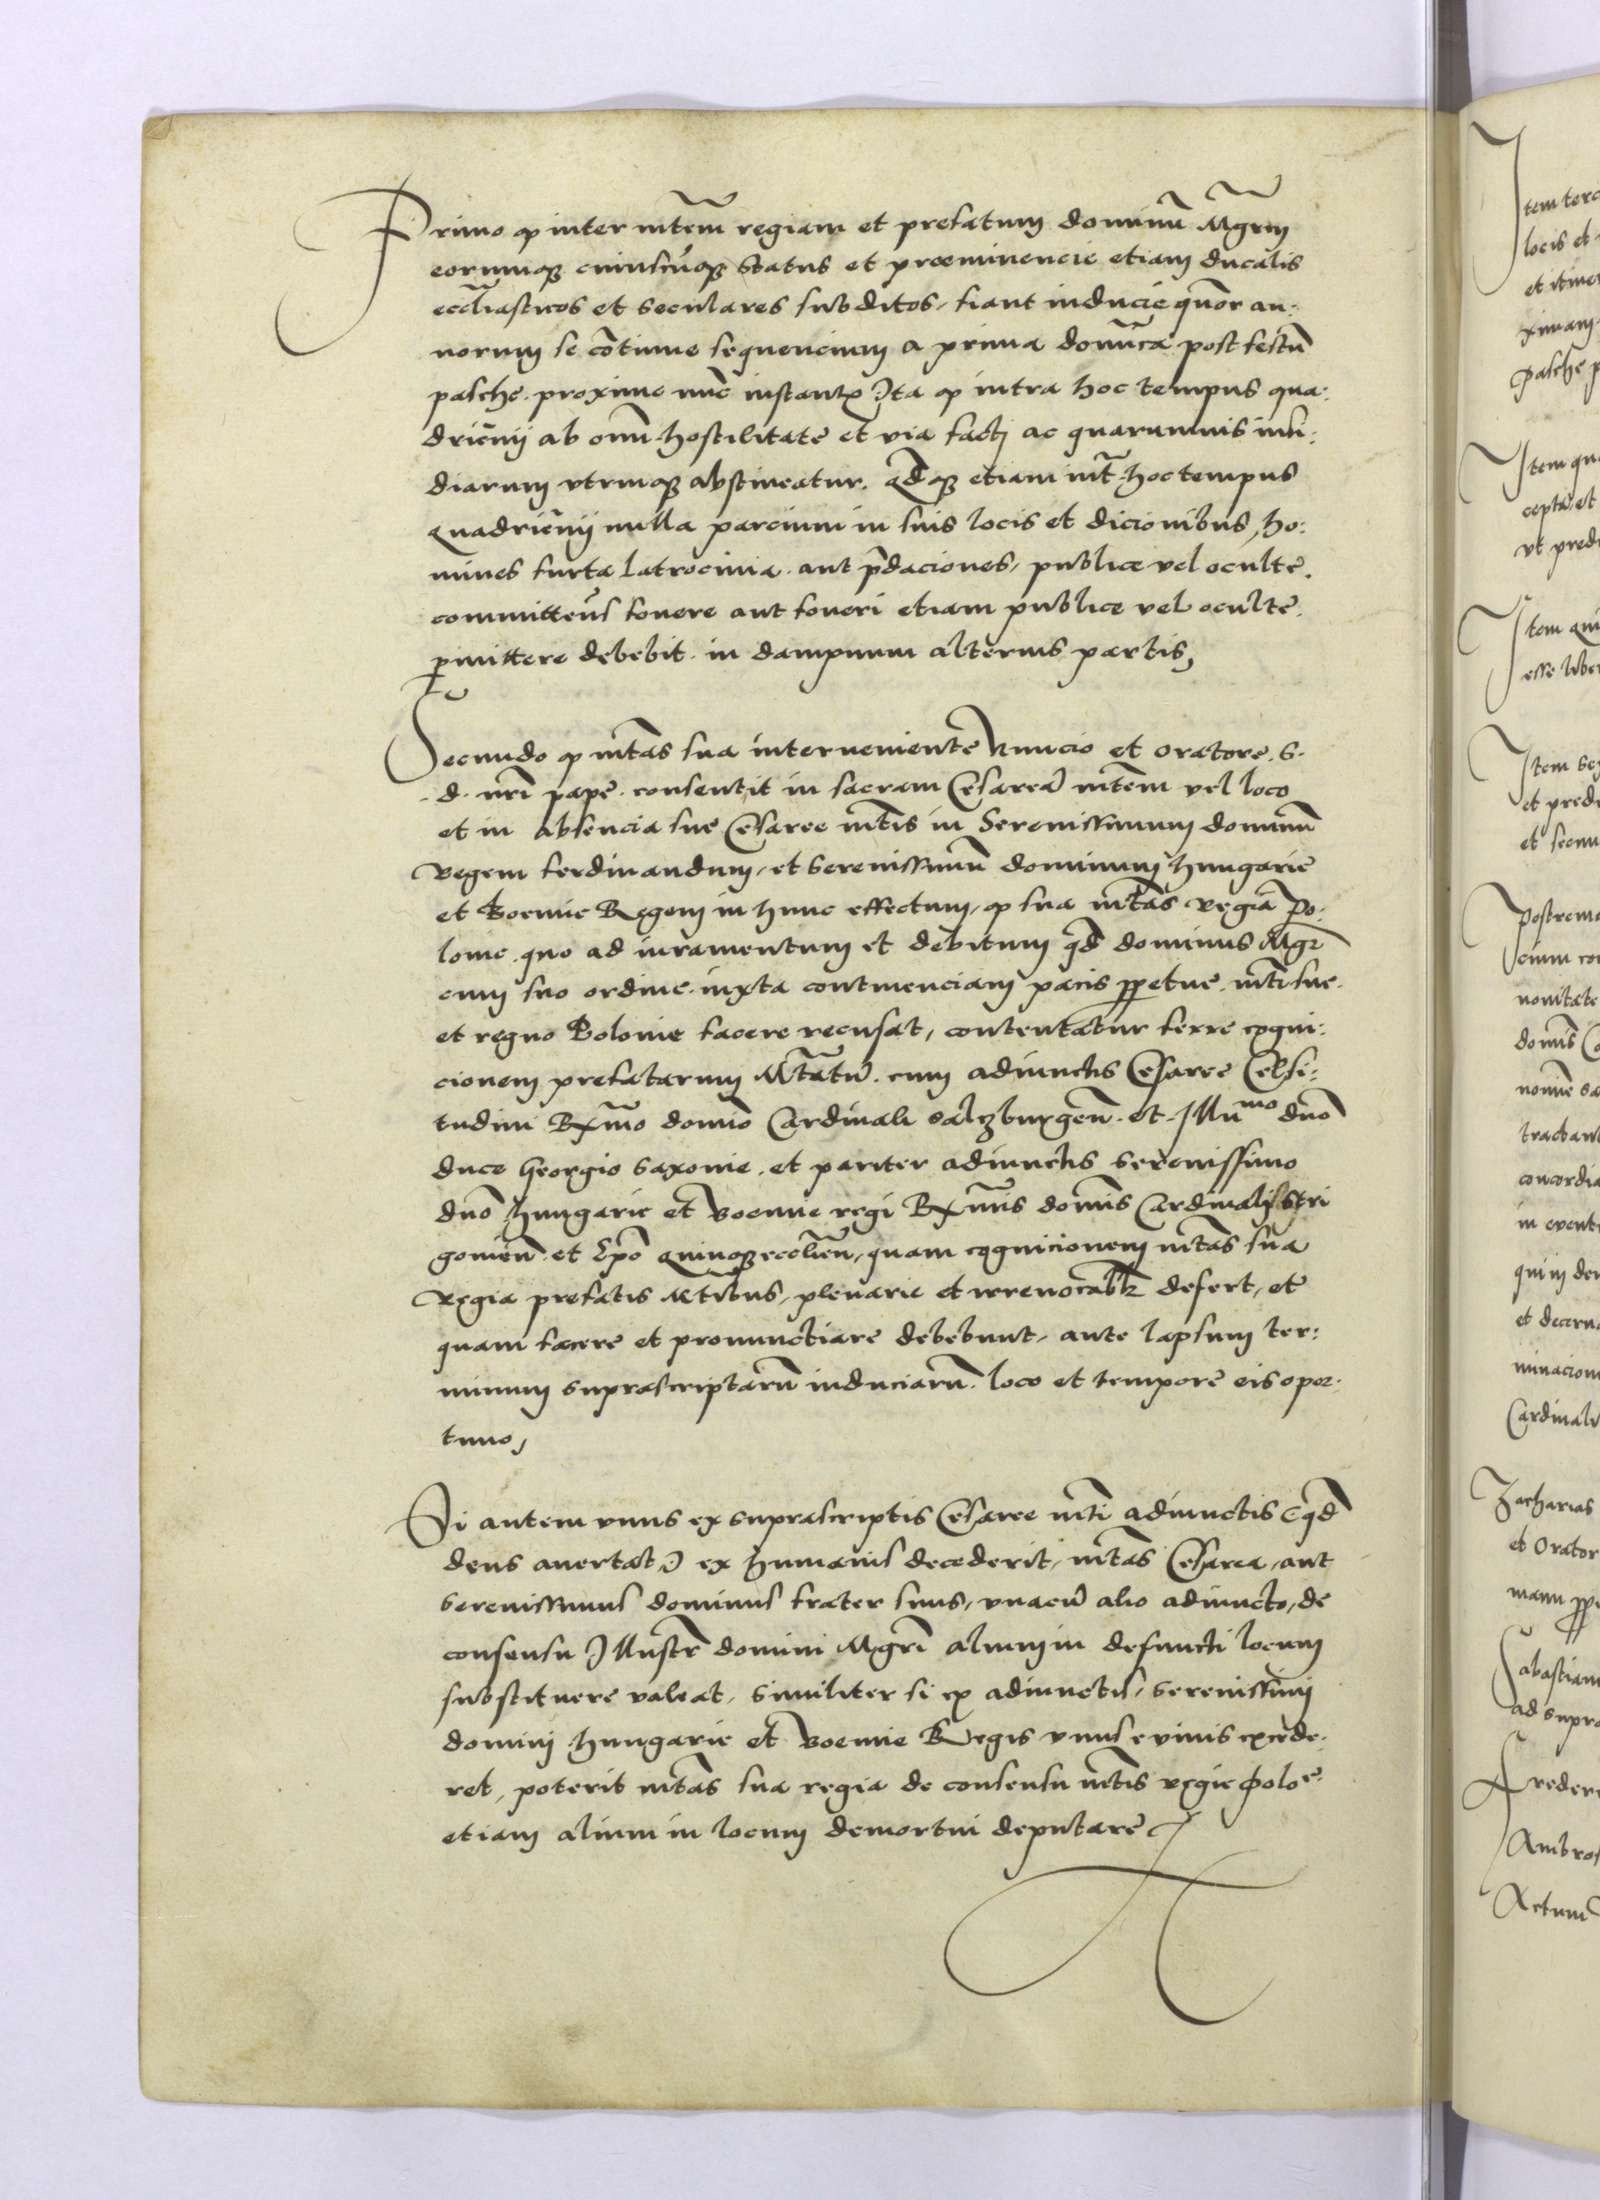 Primo ꝙ inter mtem regiam et prefatum dominũ Mgrm
eorumqꝫ cuiuscũqꝫ status et preeminencie etiam ducalis
eccliasticos et seculares subditos, fiant inducie quor an:
norum se cõtinue sequencium a prima domica post festũ
pasche. proxime nũc instantꝭ Ita ꝙ intra hoc tempus qua:
drienij ab omi hostilitate et via factj ac quarumuis insi:
diarum vtrinqꝫ abstineatur. Qdqꝫ etiam int hoc tempus
quadrienij nulla parcium in suis locis et dicionibus, ho:
mines furta latrocinia. aut pdaciones, publice vel oculte.
committens fouere aut foueri etiam publice vel oculte.
pmittere debebit. in dampnum alterius partis,
Secundo ꝙ mtas sua interueniente Nuncio et oratore. S.
.d. nri pape. consentit in sacram Cesareã mtem vel loco
et in absencia sue Cesaree mtis in Serenissimum dominũ
regem ferdinandum, et serenissimũ dominum hungarie
et Boemie Regem in hunc effectum, ꝙ sua mtas regia Po:
lonie. quo ad iuramentum et debitum qd dominus Mgr
cum suo ordine. iuxta continenciam pacis ppetue. mti sue.
et regno Polonie facere recusat, contentatur ferre cogni:
cionem prefatarum Mtatũ. cum adiunctis Cesaree Celsi:
tudini Rxmo domio Cardinali salczburgen. et Illumo dno
duce Georgio saxonie. et pariter adiunctis serenissimo
dno hungarie et Boemie regi Rxmis domis Cardinali stri
gonien. et Epo quinqꝫecclien, quam cognicionem mtas sua
regia prefatis Mtibus, plenarie et irreuocablr defert, et
quam facere et pronunctiare debebunt, ante lapsum ter:
minum suprascriptarũ induciarũ. loco et tempore eis opor.
tuno,
Si autem vnus ex suprascriptis Cesaree mti adiunctis (qd
deus auertat) ex humanis decederit, mtas Cesarea, aut
serenissimus dominus frater suus, vnacũ alio adiuncto, de
consensu Illustr domini Mgri alium in defuncti locum
substituere valeat. Similiter si ex adiunctis, serenissimi
domini hungarie et Boemie Regis vnus e viuis excede.
ret, poterit mtas sua regia de consensu mtis regie Poloe.
etiam alium in locum demortui deputare